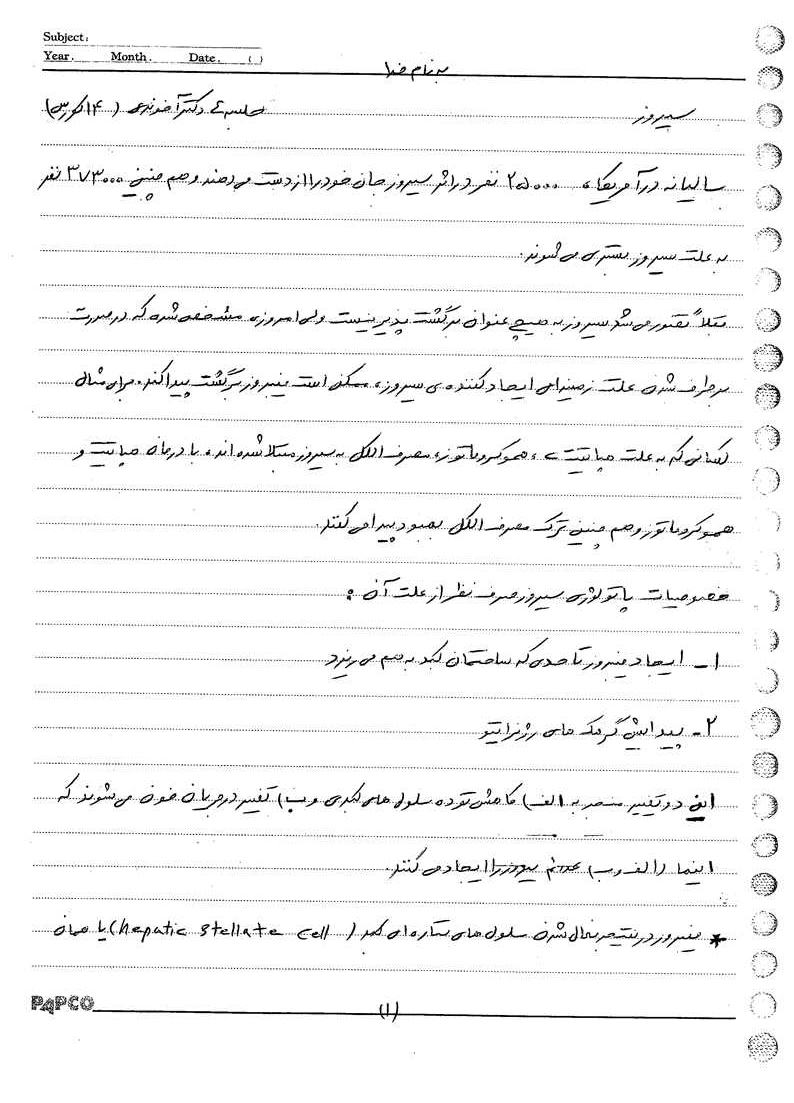 Subject:
Year. Month. Date. ( )
به نام خدا
سیروز جلسه ۴ دکتر آخوندی (۱۴ اکبرس)
سالیانه در آمریکا، ۲۵۰۰۰ نفر در اثر سیروز جان خود را از دست می دهند و هم چنین ۳۷۳۰۰۰ نفر
به علت سیروز بستری می شوند.
قبلاً تصور می شد سیروز به هیچ عنوان برگشت پذیر نیست ولی امروزه مشخص شده که در صورت
برطرف شدن علت زمینه‌ای ایجاد کننده ی سیروز، ممکن است فیبروز برگشت پیدا کند. برای مثال
کسانی که به علت هپاتیت C، هموکروماتوز، مصرف الکل به سیروز مبتلا شده اند، با درمان هپاتیت و
هموکروماتوز و هم چنین ترک مصرف الکل بهبود پیدا می کنند.
خصوصیات پاتولوژی سیروز صرف نظر از علت آن :
۱- ایجاد فیبروز تا حدی که ساختمان کبد به هم می ریزد
۲- پیدایش گرهک های رژنراتیو
این دو تغییر منجر به الف) کاهش توده سلول های کبدی و ب) تغییر در جریان خون می شوند که
اینها (الف و ب) علائم سیروز را ایجاد می کنند.
* فیبروز در نتیجه فعال شدن سلول های ستاره ای کبد (hepatic stellate cell) یا همان
PAPCO (۱)